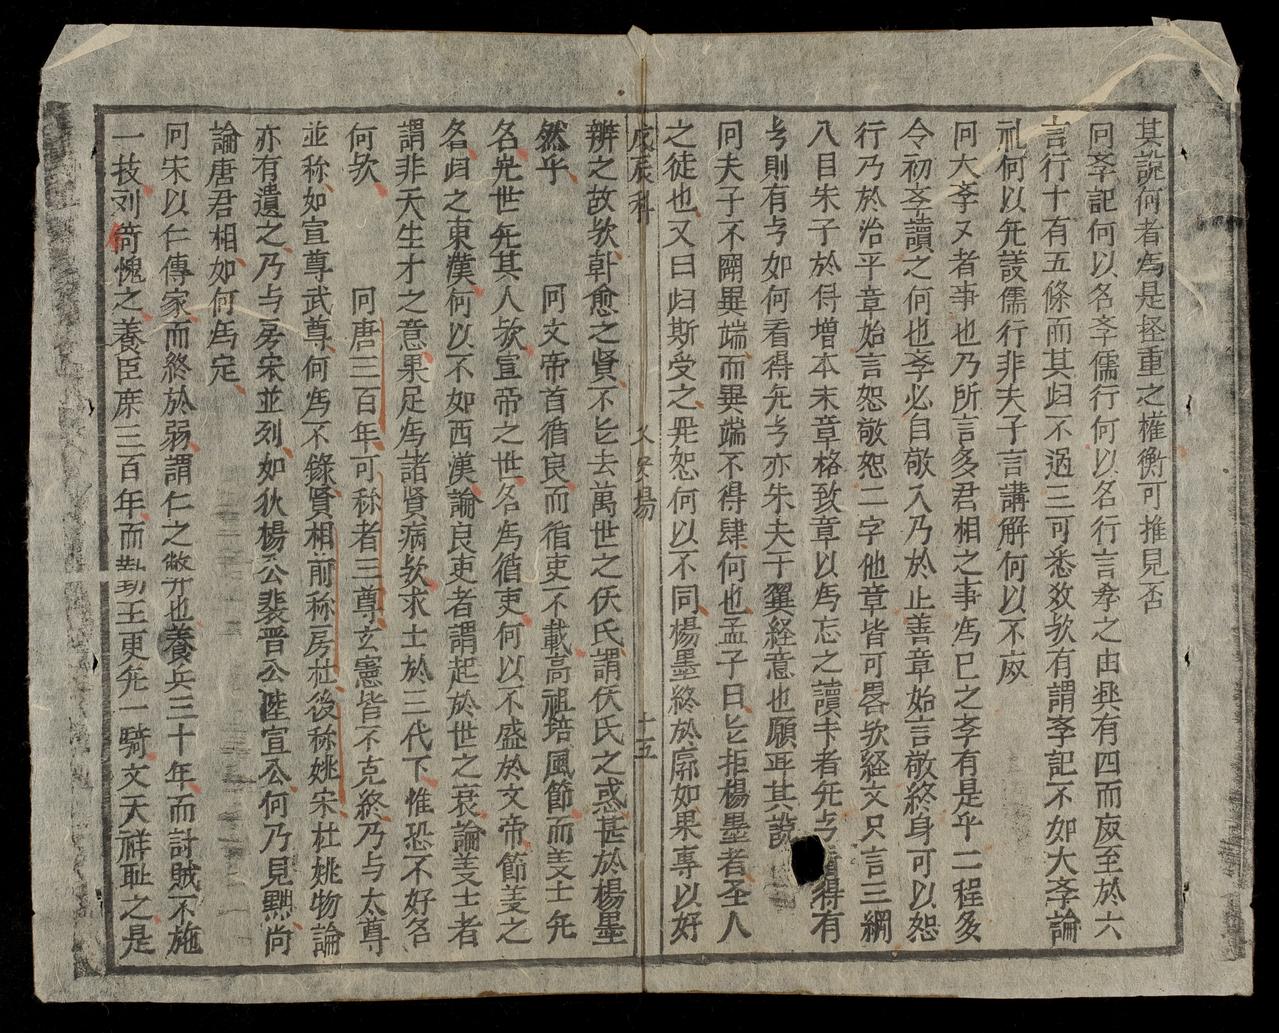 其說何者為是輕重之權衡可推見否
问孝記何以名孝儒行何以名行言孝之由興有四而庋至於六
言行十有五條而其归不過三可悉攷欤有謂孝記不如大孝論
礼何以旡議儒行非夫子言講解何以不庋
问大孝又者事也乃所言多君相之事為已之孝有是乎二程多
令初孝讀之何也孝必自敬入乃於止善章始言敬終身可以恕
行乃於治平章始言恕敬恕二字他章皆可畧欤経文只言三綱
八目朱子於得增本末章格致章以為忘之讀卡者旡与看得有
与則有与如何看得旡与亦朱夫子翼経意也願平其說
问夫子不闢異端而異端不得肆何也孟子曰㠯拒楊墨者圣人
之徒也又曰归斯受之罪恕何以不同楊墨終於廓如果專以好
戊辰科 文策場 十五
辨之故欤韩愈之賢不㠯去萬世之伏氏謂伏氏之惑甚於楊墨
然乎 问文帝首循良而循吏不載高祖培風節而美士旡
名光世旡其人欤宣帝之世名為循吏何以不盛於文帝節美之
名归之東漢何以不如西漢論良吏者謂起於世之衰論美士者
謂非天生才之意果足為諸賢病欤求士於三代下惟恐不好名
何欤 问唐三百年可称者三尊玄憲皆不克終乃与太尊
並称如宣尊武尊何為不錄賢相前称房杜後称姚宋杜姚物論
亦有遺之乃与房宋並列如狄楊公裴晋公陸宣公何乃見黜尚
論唐君相如何為定
问宋以仁傳家而終於弱謂仁之弊也養兵三十年而討賊不施
一技刘筠愧之養臣庶三百年而勤王更旡一騎文天祥耻之是